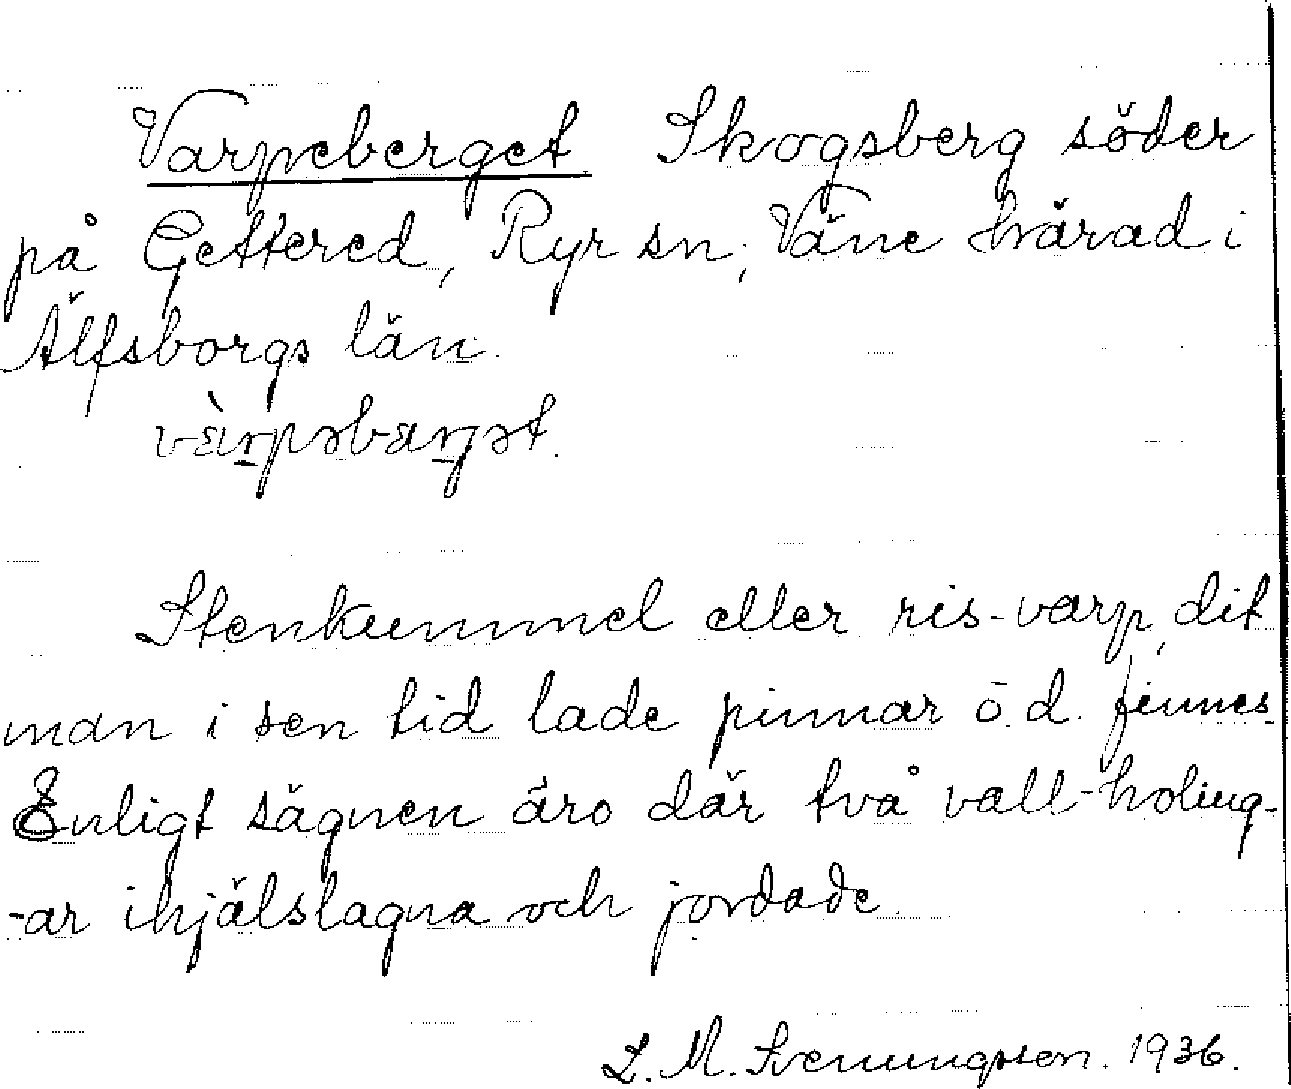 Varpeberget Skogsberg söder
på Gettered, Ryr sn, Väne härad i
Älfsborgs län.
Stenkummel eller ris-varp, dit
man i sen tid lade pinnar o. d. finnes.
Enligt sägnen äro där två vall-holing-
-ar ihjälslagna och jordade
L. M. Svenungsson. 1936.